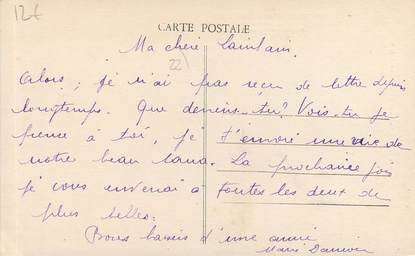 12€
CARTE POSTALE
Ma chère
22
Alors, je n'ai pas reçu de lettre depuis
longtemps. Que deviens-tu? Vois-tu je
pense à toi, je t'envoie une vue de
notre beau sana. La prochaine fois
je vous enverrai à toutes les deux de
plus belles.
Bons baisers d'une amie
Marie